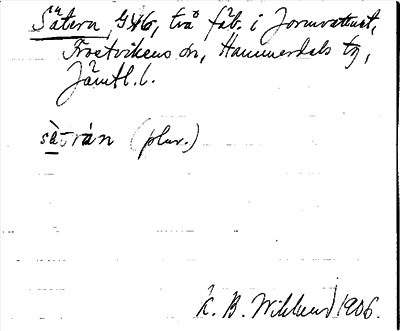 Sätern, G.H6, två fäb. i Jormvattnet,
Frostvikens sn, Hammerdals tg,
Jämtl. l.
sä̀-rán (plur.)
K. B. Wiklund 1906.